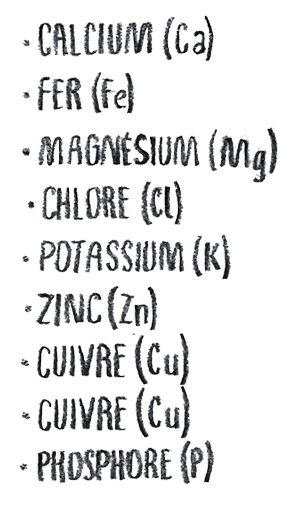 · CALCIUM (Ca)
· FER (Fe)
· MAGNÉSIUM (Mg)
· CHLORE (Cl)
· POTASSIUM (K)
· ZINC (Zn)
· CUIVRE (Cu)
· CUIVRE (Cu)
· PHOSPHORE (P)